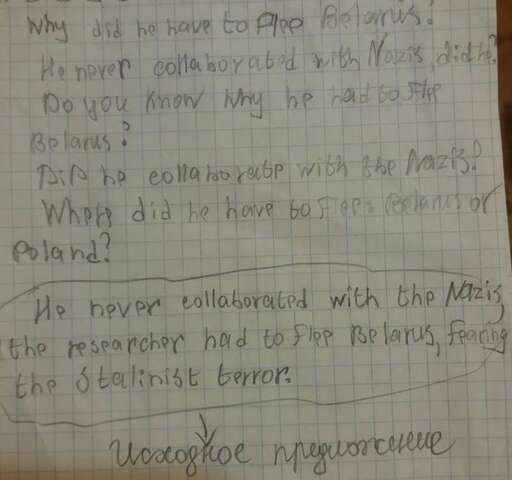 Why did he have to flee Belarus?
He never collaborated with Nazis did he?
Do you know why he had to flee
Belarus?
Did he collaborate with the Nazis?
Where did he have to flee: Belarus or
Poland?
He never collaborated with the Nazis,
the researcher had to flee Belarus, fearing
the Stalinist terror.
Исходное предложение